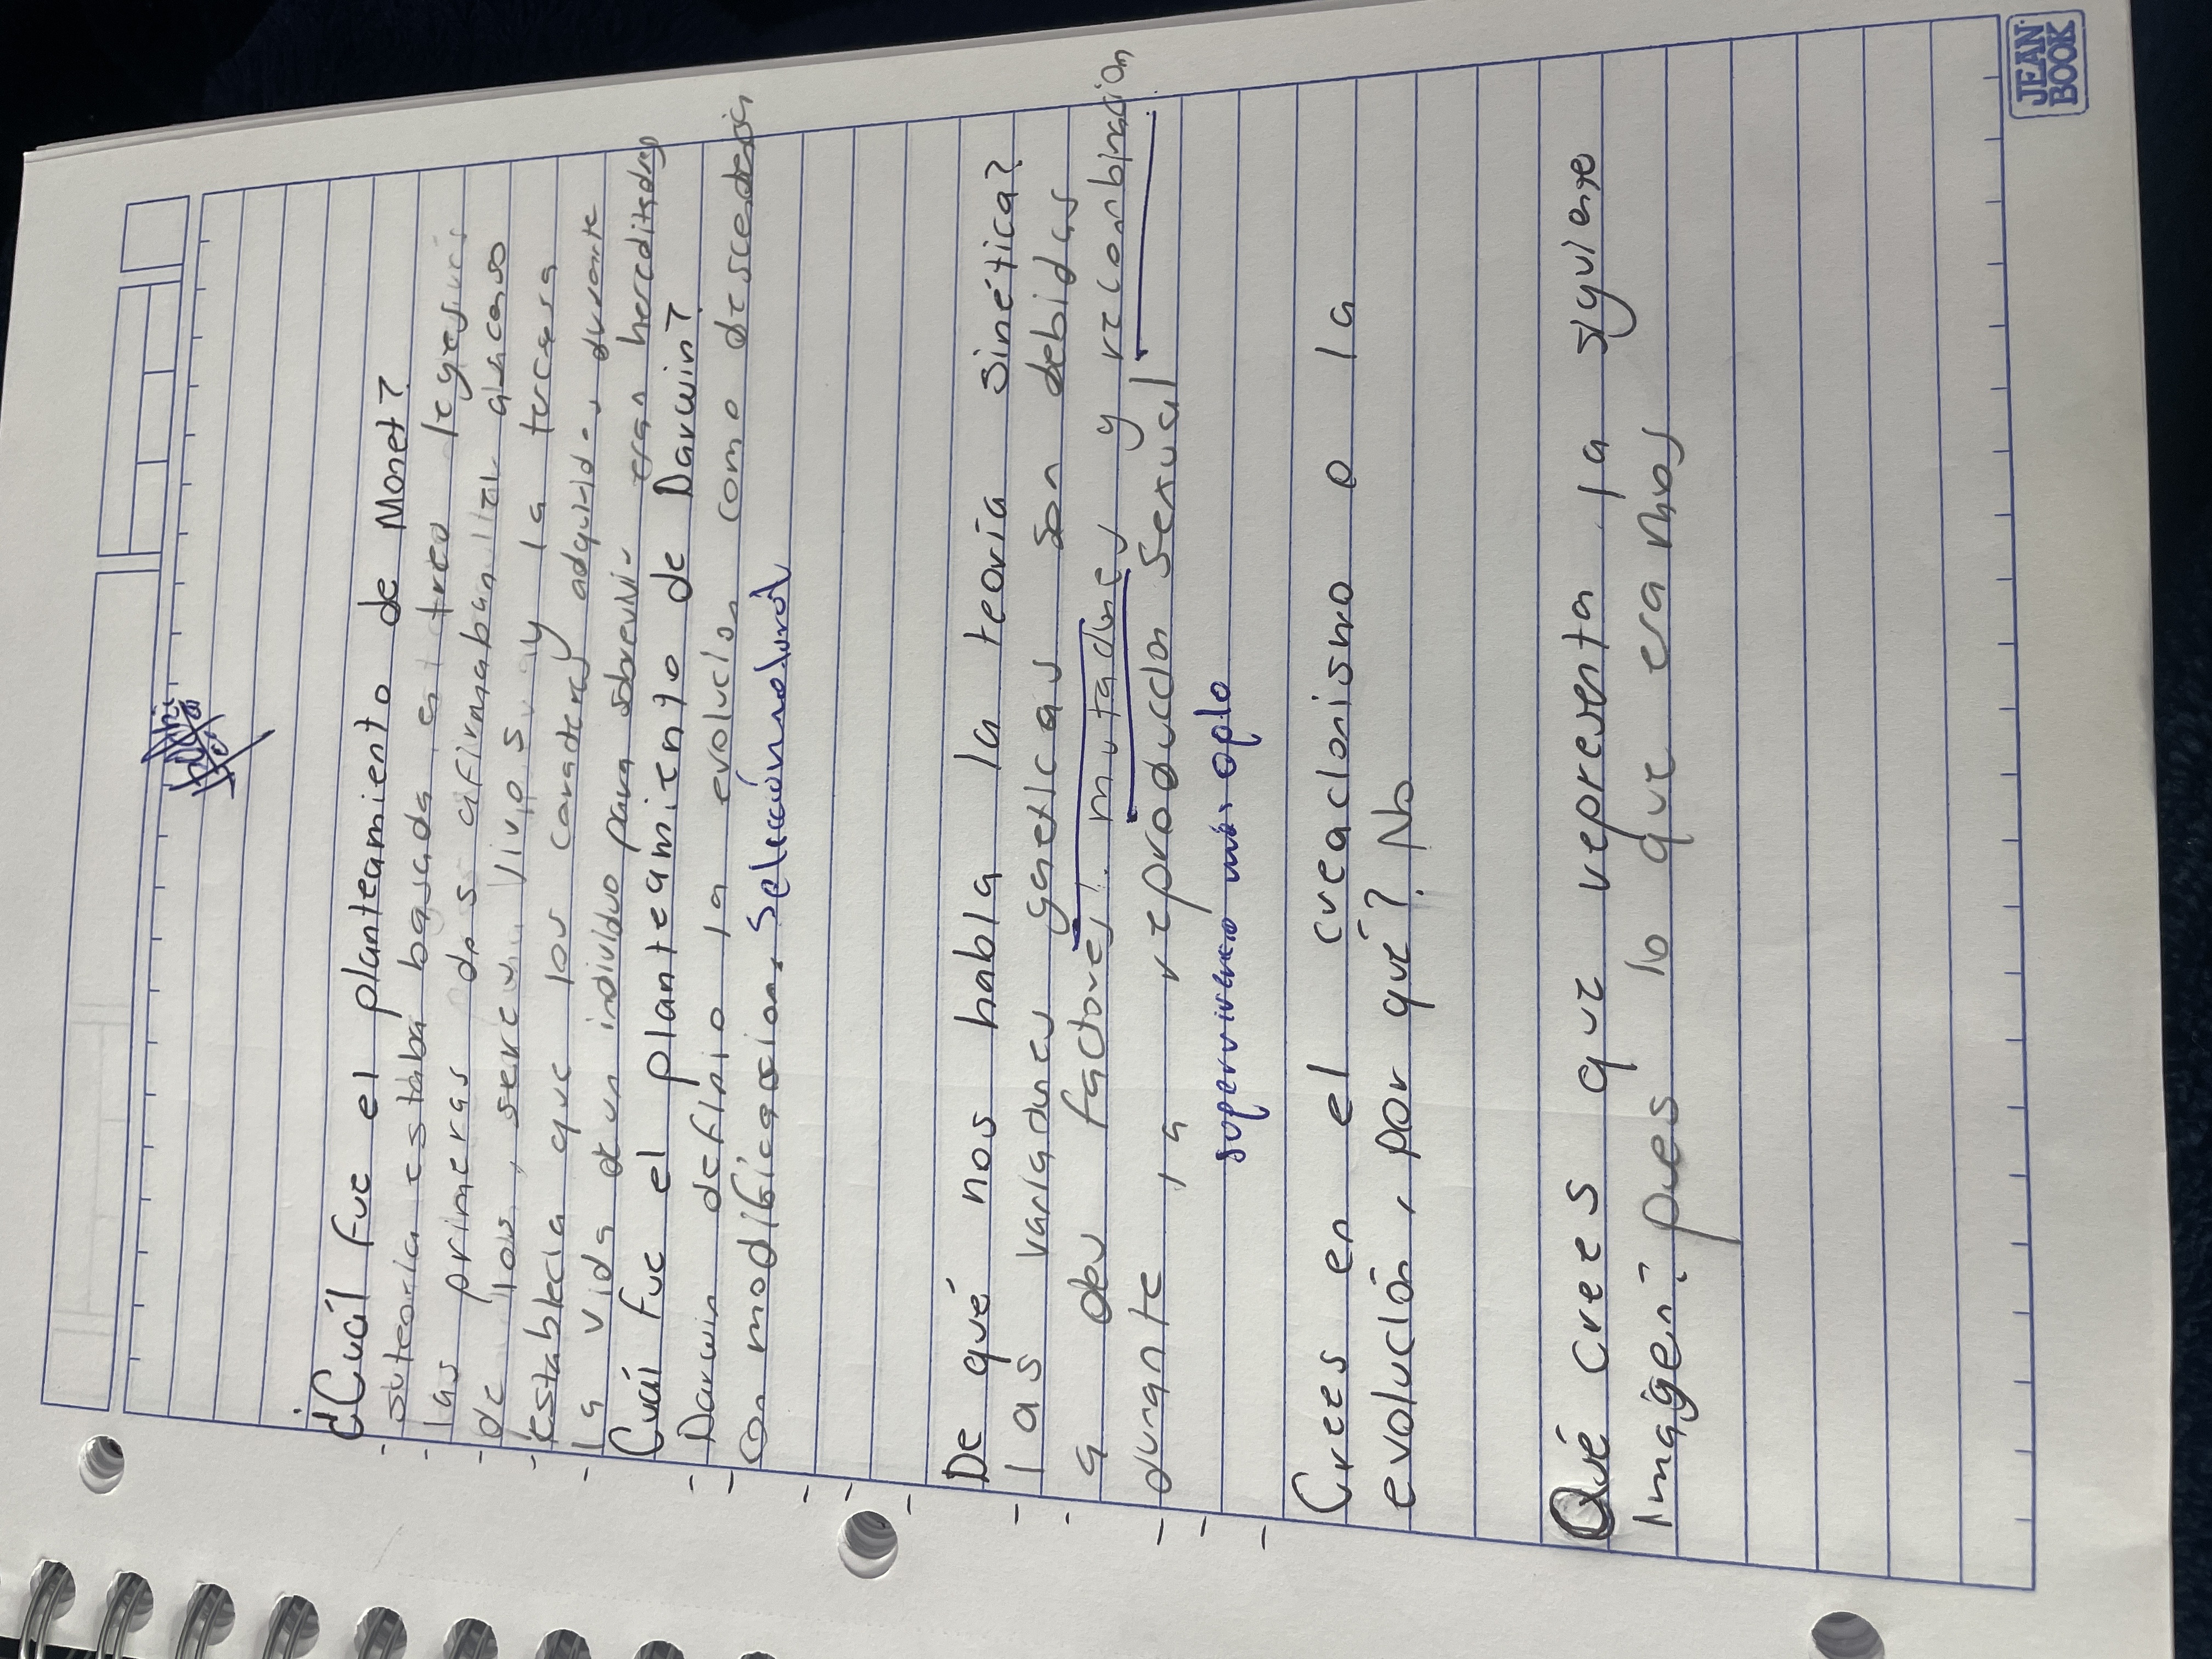 ¿Cuál fue el planteamiento de Monet?
su teoria estaba basada en tres leyes
las primeras dos afirmaban
de los seres vivos y la tercera
establecia que los caracteres adquiridos durante
la vida de un individuo para sobrevivir eran hereditarios
Cuál fue el planteamiento de Darwin?
Darwin definio la evolucion como
Con modificacion. selección natural
De qué nos habla la teoria sinética?
las variaciones geneticas son debidas
a dos factores: mutaciones y recombinacion
durante la reproduccion sexual
supervivencia más apto
Crees en el creacionismo o la
evolución, por qué? No
Qué crees que representa la siguiente
Imagen? pues lo que eramos
JEAN
BOOK